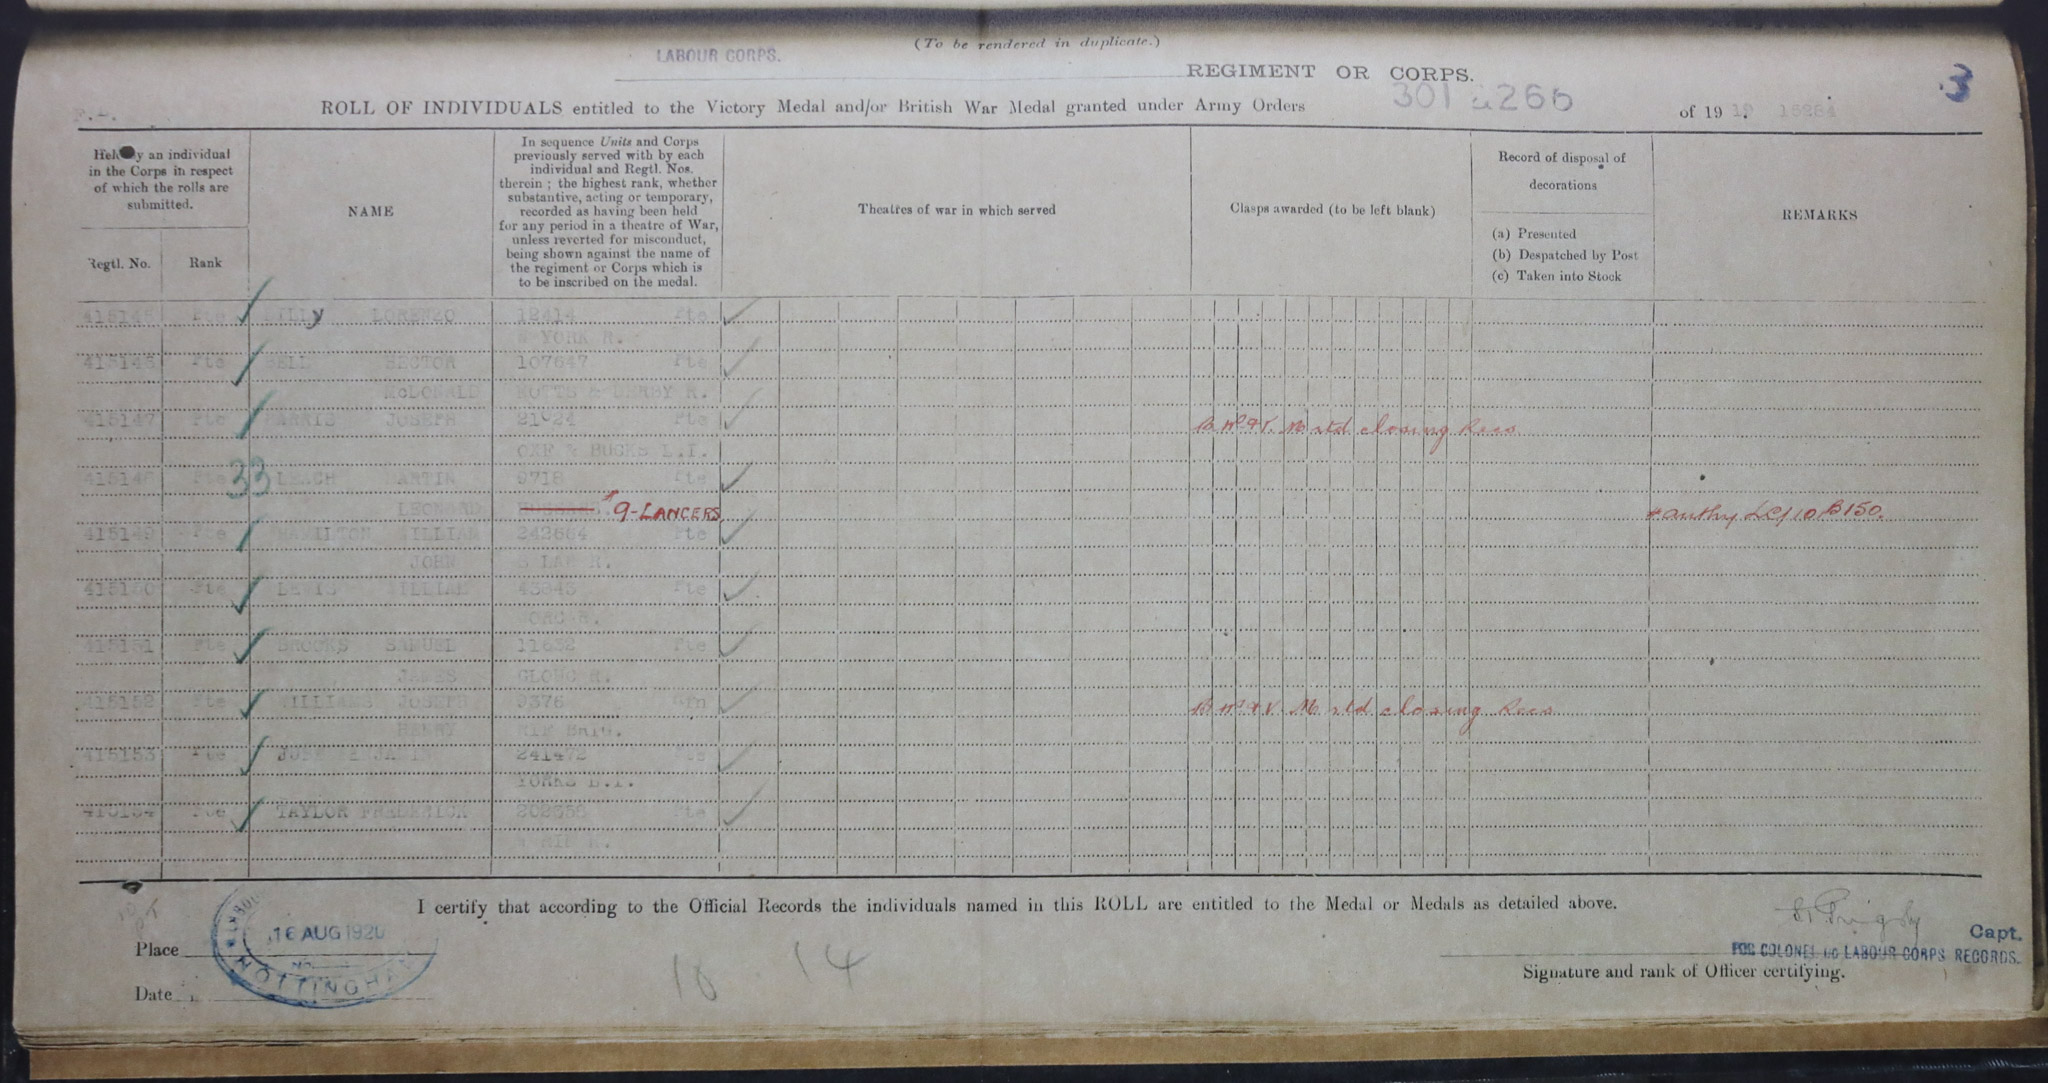 (To be rendered in duplicate.)
LABOUR CORPS.
REGIMENT OR CORPS.
3
ROLL OF INDIVIDUALS entitled to the Victory Medal and/or British War Medal granted under Army Orders 301 & 266 of 19
Held by an individual in the Corps in respect of which the rolls are submitted.
Regtl. No.
Rank
NAME
In sequence Units and Corps previously served with by each individual and Regtl. Nos. therein ; the highest rank, whether substantive, acting or temporary, recorded as having been held for any period in a theatre of War, unless reverted for misconduct, being shown against the name of the regiment or Corps which is to be inscribed on the medal.
Theatres of war in which served
Clasps awarded (to be left blank)
Record of disposal of decorations
(a) Presented
(b) Despatched by Post
(c) Taken into Stock
REMARKS
415145 Pte LORENZO 12414 Pte
W YORK R.
415146 Pte BELL HECTOR 107647 Pte
McDONALD NOTTS & DERBY R.
415147 Pte HARRIS JOSEPH Pte closing Recs
OXF & BUCKS L.I.
415148 Pte 33 LEACH MARTIN 9718 Pte
LEONARD 9-LANCERS
415149 Pte HAMILTON WILLIAM 242664 Pte
JOHN S LAN R.
415150 Pte LEWIS WILLIAM 43643 Pte
WORC R.
415151 Pte BROOKS SAMUEL 11632 Pte
JAMES GLOUC R.
415152 Pte WILLIAMS JOSEPH 9376 closing Recs
HENRY RIF BRIG.
415153 Pte 241472 Pte
YORKS L.I.
415154 Pte TAYLOR FREDERICK Pte
I certify that according to the Official Records the individuals named in this ROLL are entitled to the Medal or Medals as detailed above.
Place
16 AUG 1920
NOTTINGHAM
Date
14
Capt.
FOR COLONEL i/c LABOUR CORPS RECORDS.
Signature and rank of Officer certifying.